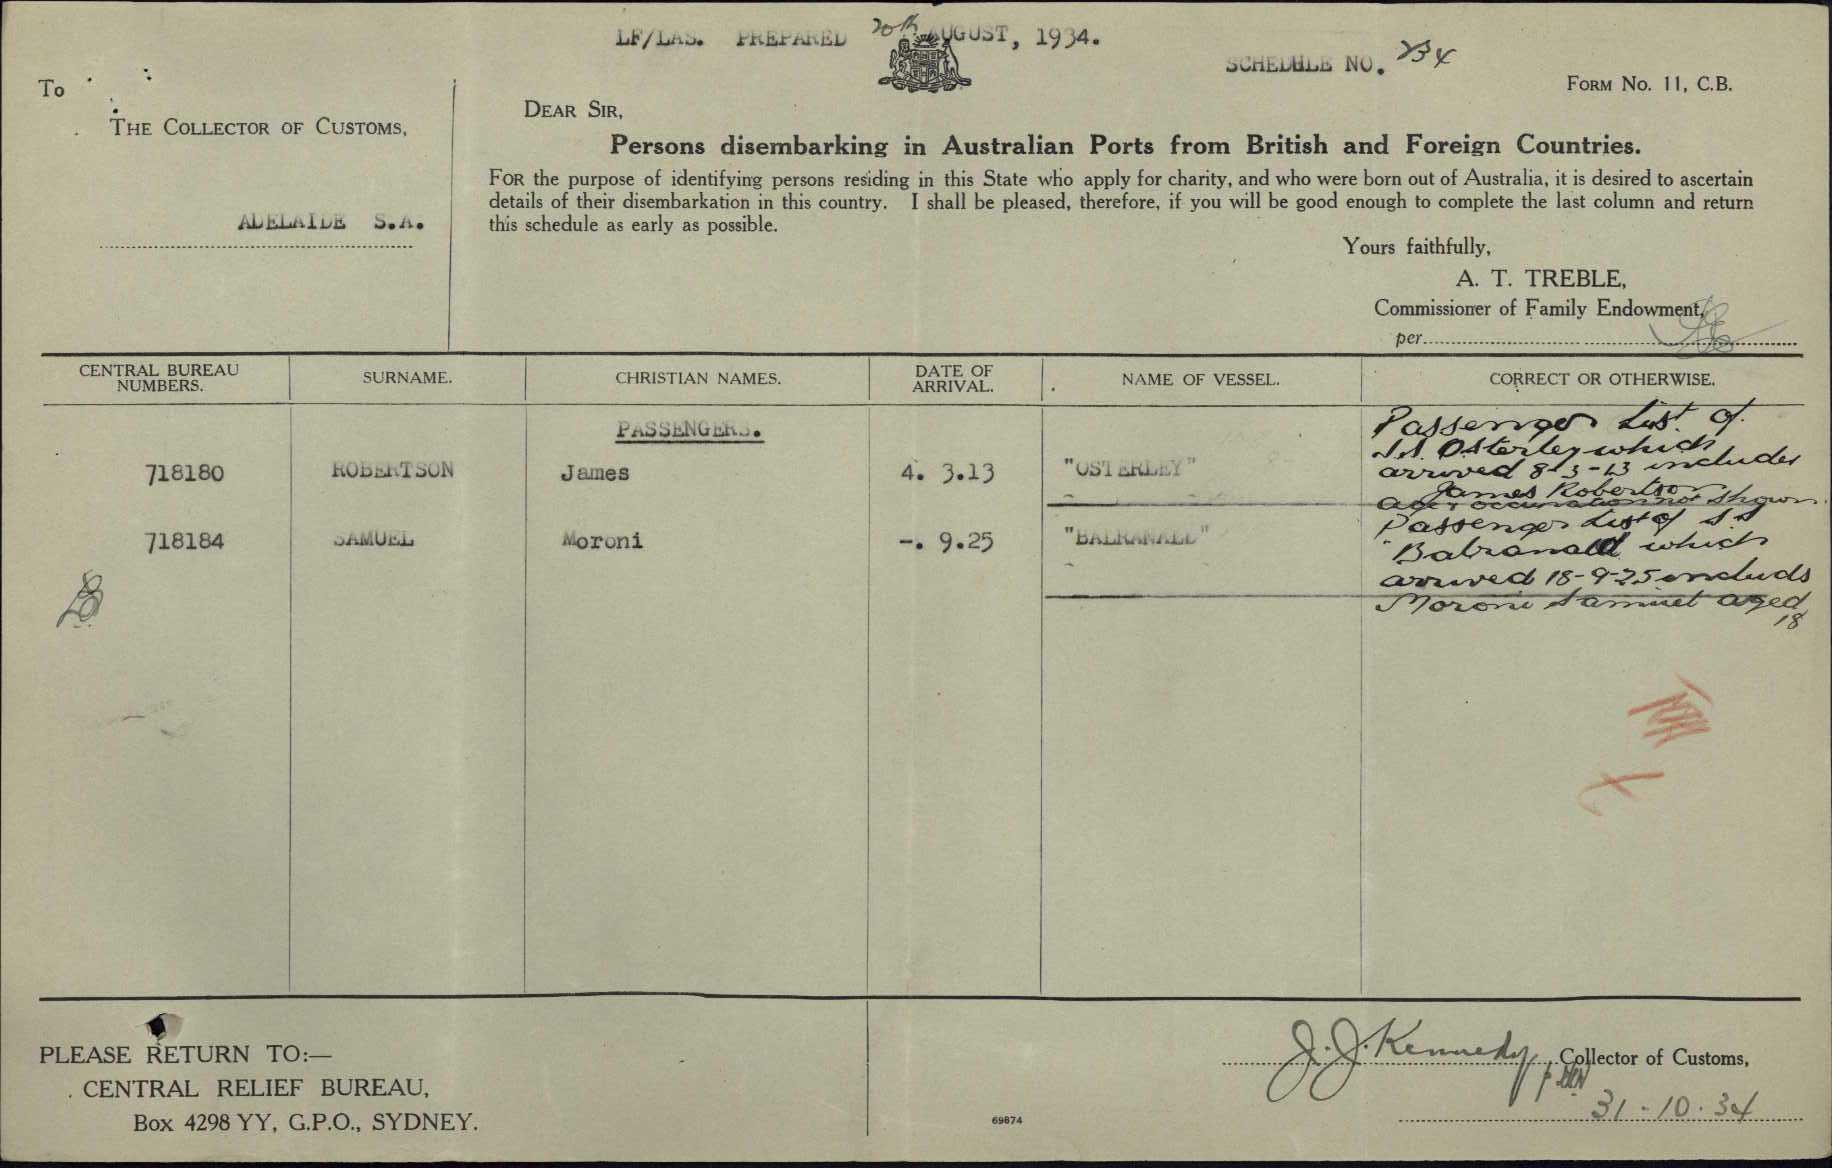 LF/LAS. PREPARED 20th AUGUST, 1934.
SCHEDULE NO. 234
FORM NO. 11, C.B.
To
THE COLLECTOR OF CUSTOMS,
ADELAIDE S.A.
DEAR SIR,
Persons disembarking in Australian Ports from British and Foreign Countries.
FOR the purpose of identifying persons residing in this State who apply for charity, and who were born out of Australia, it is desired to ascertain
details of their disembarkation in this country. I shall be pleased, therefore, if you will be good enough to complete the last column and return
this schedule as early as possible.
Yours faithfully,
A. T. TREBLE,
Commissioner of Family Endowment,
per
CENTRAL BUREAU NUMBERS. SURNAME. CHRISTIAN NAMES. DATE OF ARRIVAL. NAME OF VESSEL. CORRECT OR OTHERWISE.
PASSENGERS.
718180 ROBERTSON James 4. 3.13 "OSTERLEY"
Passenger List of
S.S. Osterley which
arrived 8-3-13 includes
James Robertson
age & occupation not shown.
718184 SAMUEL Moroni -. 9.25 "BALRANALD"
Passenger List of S S
"Balranald which
arrived 18-9-25 includs
Moroni Samuel aged
18
PLEASE RETURN TO:—
CENTRAL RELIEF BUREAU,
Box 4298 YY, G.P.O., SYDNEY.
69874
J. J. Kennedy Collector of Customs,
31-10-34